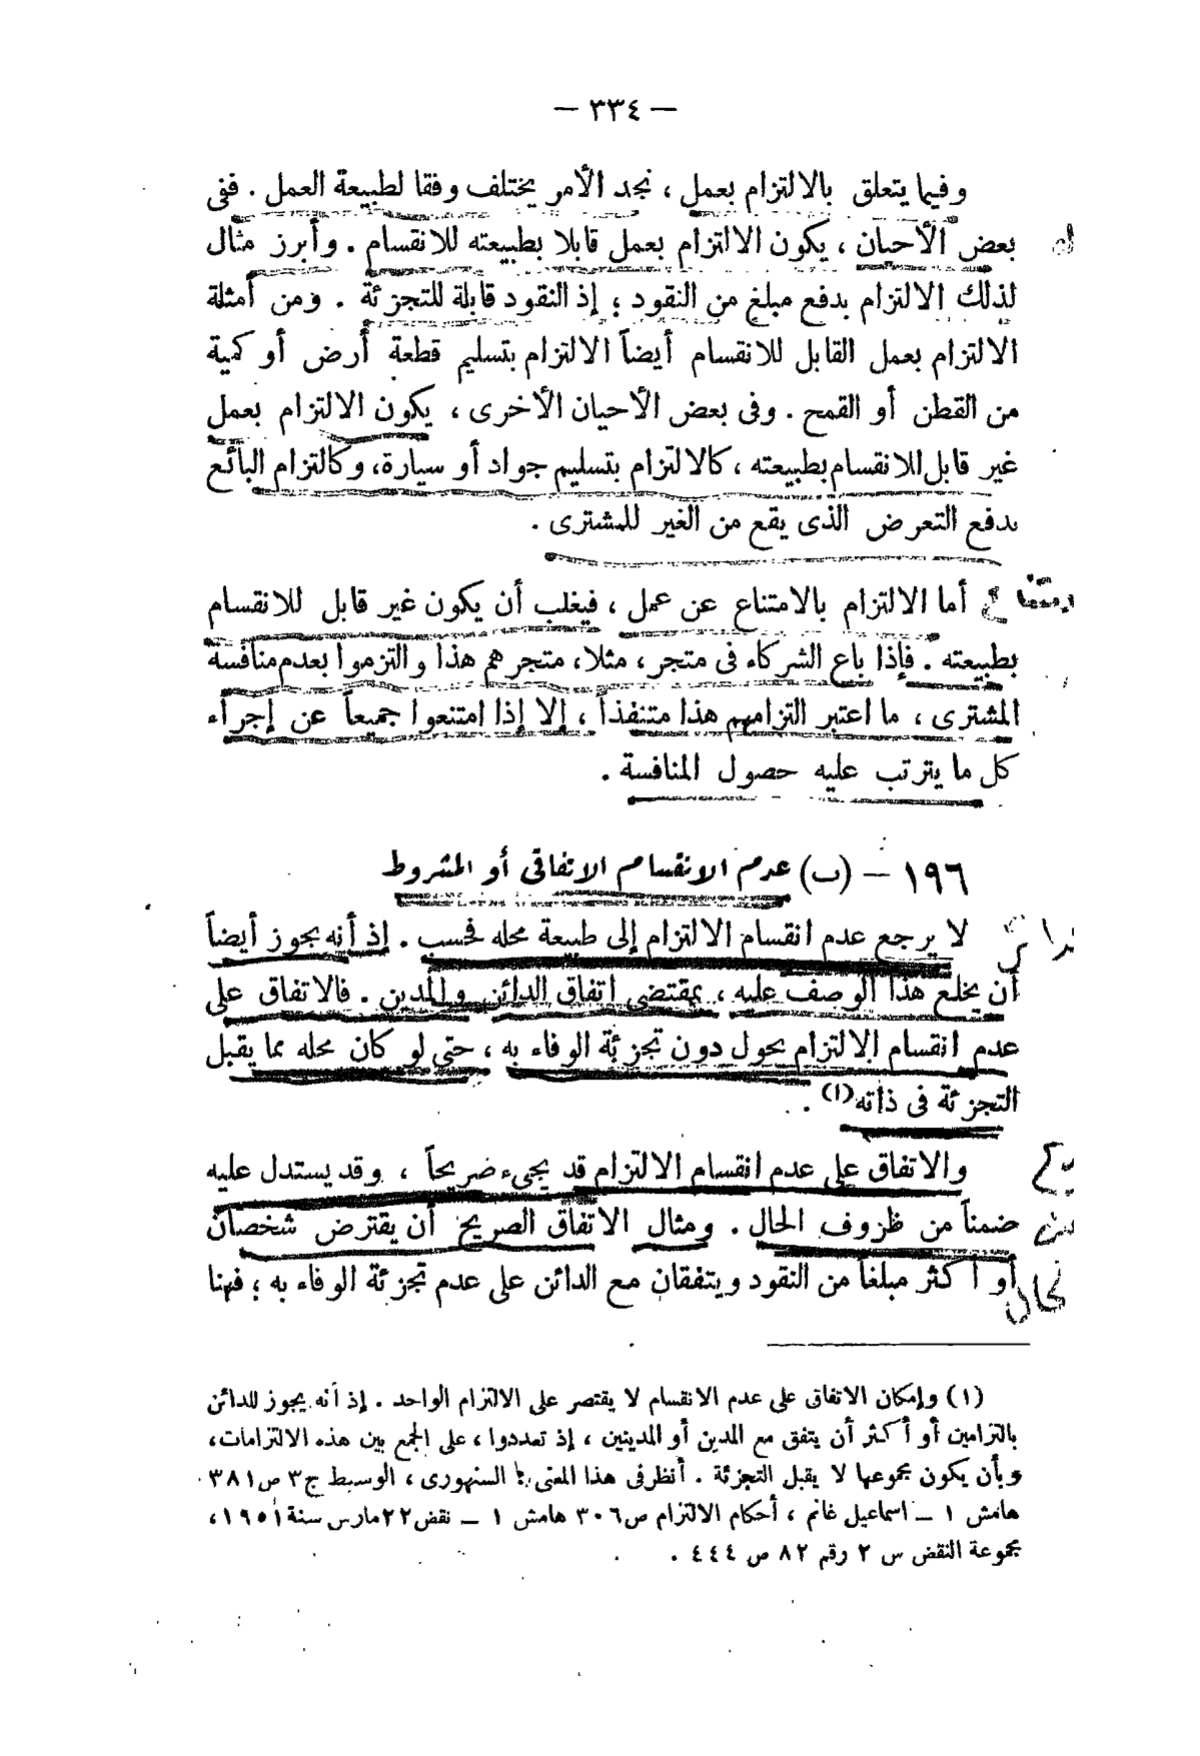 — ٣٣٤ —
وفيما يتعلق بالالتزام بعمل ، نجد الأمر يختلف وفقا لطبيعة العمل . ففى
بعض الأحيان ، يكون الالتزام بعمل قابلا بطبيعته للانقسام . وأبرز مثال
لذلك الالتزام بدفع مبلغ من النقود ؛ إذ النقود قابلة للتجزئة . ومن أمثلة
الالتزام بعمل القابل للانقسام أيضاً الالتزام بتسليم قطعة أرض أو كمية
من القطن أو القمح . وفى بعض الأحيان الأخرى ، يكون الالتزام بعمل
غير قابل للانقسام بطبيعته ، كالالتزام بتسليم جواد أو سيارة ، وكالتزام البائع
بدفع التعرض الذى يقع من الغير للمشترى .
أما الالتزام بالامتناع عن عمل ، فيغلب أن يكون غير قابل للانقسام
بطبيعته . فإذا باع الشركاء فى متجر ، مثلا ، متجرهم هذا والتزموا بعدم منافسة
المشترى ، ما اعتبر التزامهم هذا متنفذاً ، إلا إذا امتنعوا جميعاً عن إجراء
كل ما يترتب عليه حصول المنافسة .
١٩٦ – (ب) عدم الانقسام الاتفاقى أو المشروط
لا يرجع عدم انقسام الالتزام إلى طبيعة محله فحسب . إذ أنه يجوز أيضاً
أن يخلع هذا الوصف عليه ، بمقتضى اتفاق الدائن والمدين . فالاتفاق على
عدم انقسام الالتزام يحول دون تجزئة الوفاء به ، حتى لو كان محله مما يقبل
التجزئة فى ذاته (١) .
والاتفاق على عدم انقسام الالتزام قد يجىء صريحاً ، وقد يستدل عليه
ضمناً من ظروف الحال . ومثال الاتفاق الصريح أن يقترض شخصان
أو أكثر مبلغاً من النقود ويتفقان مع الدائن على عدم تجزئة الوفاء به ؛ فهنا
(١) وإمكان الاتفاق على عدم الانقسام لا يقتصر على الالتزام الواحد . إذ أنه يجوز للدائن
بالتزامين أو أكثر أن يتفق مع المدين أو المدينين ، إذ تعددوا ، على الجمع بين هذه الالتزامات ،
وبأن يكون مجموعها لا يقبل التجزئة . أنظر فى هذا المعنى : السنهورى ، الوسيط ج ٣ ص ٣٨١
هامش ١ – اسماعيل غانم ، أحكام الالتزام ص ٣٠٦ هامش ١ – نقض ٢٢ مارس سنة ١٩٥١ ،
مجموعة النقض س ٢ رقم ٨٢ ص ٤٤٤ .